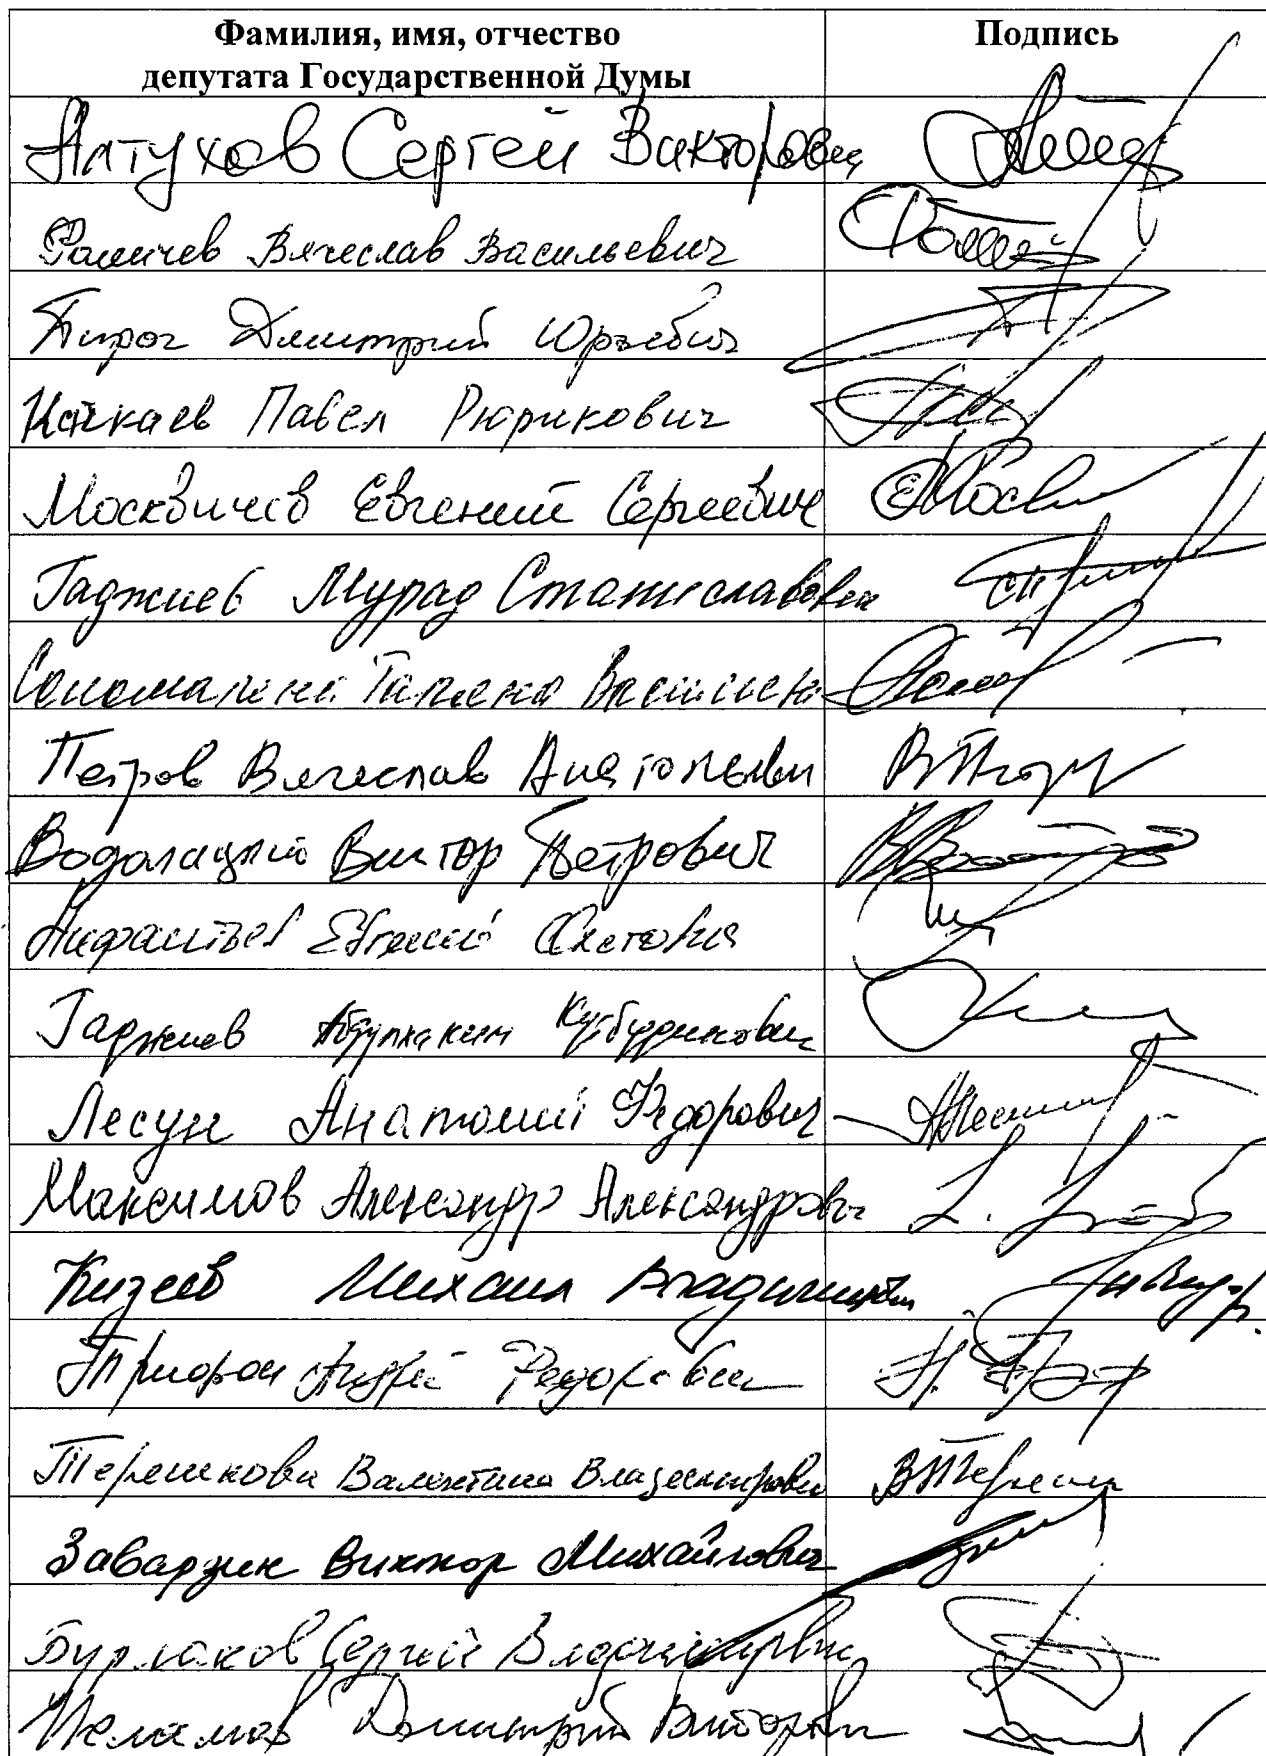 Фамилия, имя, отчество
депутата Государственной Думы
Подпись
Алтухов Сергей Викторович
Фомичев Вячеслав Васильевич
Пирог Дмитрий Юрьевич
Качкаев Павел Рюрикович
Москвичев Евгений Сергеевич
Гаджиев Мурад Станиславович
Соломатина Татьяна Васильевна
Петров Вячеслав Анатольевич
Водолацкий Виктор Петрович
Нифантьев Евгений Олегович
Гаджиев Абдулхаким Кутбудинович
Лесун Анатолий Федорович
Максимов Александр Александрович
Кизеев Михаил Владимирович
Трифонов Андрей Федорович
Терешкова Валентина Владимировна
Заварзин Виктор Михайлович
Бурлаков Сергей Владимирович
Дмитрий Викторович